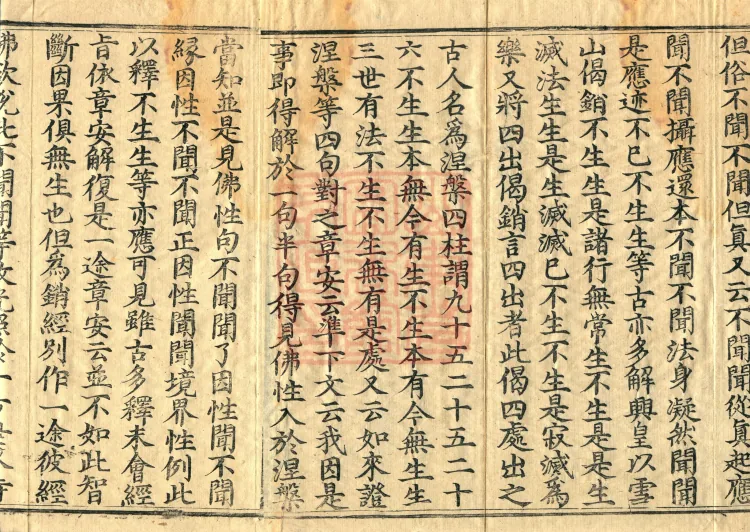 但俗不聞不聞但真又云不聞聞從真起應
聞不聞攝應還本不聞不聞法身凝然聞聞
是應迹不已不生生等古亦多解興皇以雪
山偈銷不生生是諸行無常生不生是是生
滅法生生是生滅滅已不生不生是寂滅為
樂又將四出偈銷言四出者此偈四處出之
古人名為涅槃四柱謂九十五二十五二十
六不生生本無今有生不生本有今無生生
三世有法不生不生無有是處又云如來證
涅槃等四句對之章安云準下文云我因是
事即得解於一句半句得見佛性入於涅槃
當知並是見佛性句不聞聞了因性聞不聞
緣因性不聞不聞正因性聞聞境界性例此
以釋不生生等亦應可見雖古多釋未會經
旨依章安解復是一途章安云並不如此智
斷因果俱無生也但為銷經別作一途彼經